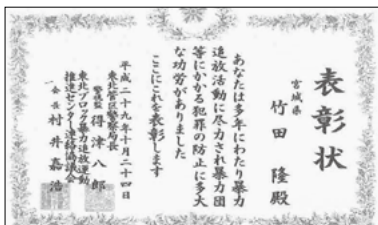 表彰状
宮城県
竹田 隆殿
あなたは多年にわたり暴力
追放活動に尽力され暴力団
等にかかる犯罪の防止に多大
な功労がありました
ここにこれを表彰します
平成二十九年十月二十四日
東北管区警察局長
警視監 得津八郎
東北ブロック暴力追放運動
推進センター連絡協議会
会長 村井嘉浩